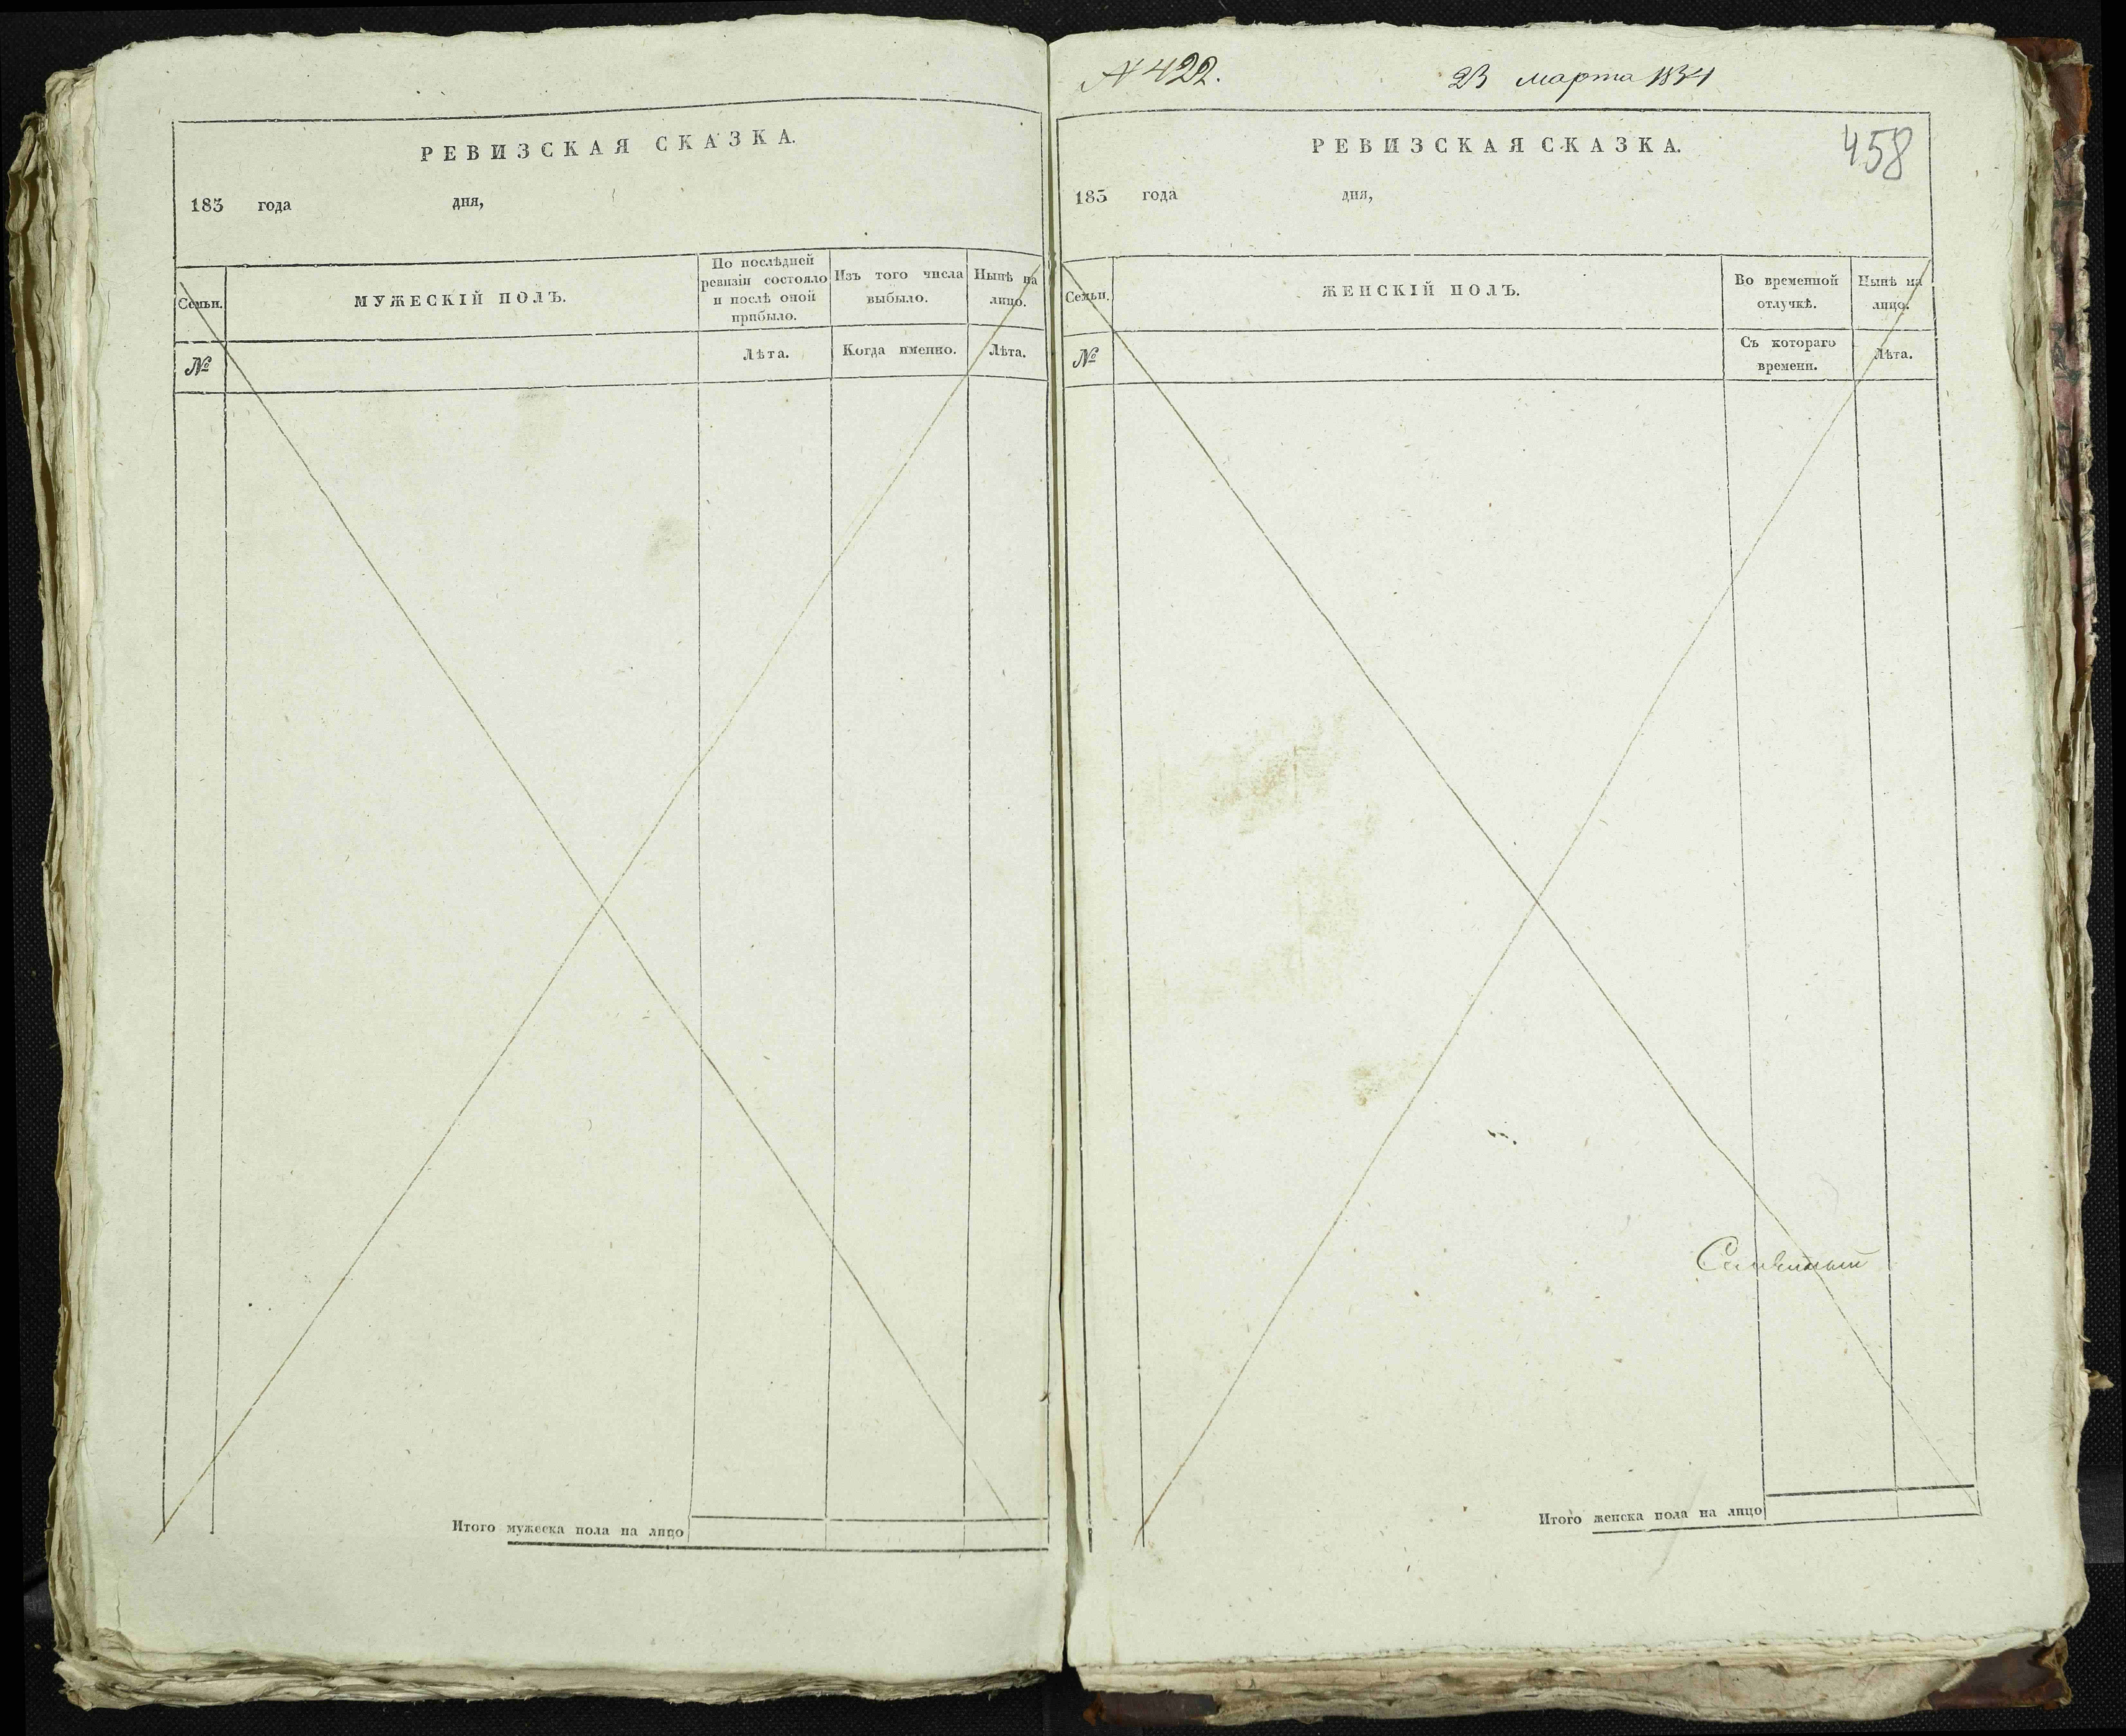 РЕВИЗСКАЯ СКАЗКА.
183 года дня,
Семьи.
МУЖЕСКІЙ ПОЛЪ.
По послѣдней ревизіи состояло и послѣ оной прибыло.
Изъ того числа выбыло.
Нынѣ на лицо.
№
Лѣта.
Когда именно.
Лѣта.
Итого мужеска пола на лицо
N 422.
23 марта 1834
РЕВИЗСКАЯ СКАЗКА.
458
183 года дня,
Семьи.
ЖЕНСКІЙ ПОЛЪ.
Во временной отлучкѣ.
Нынѣ на лицо.
№
Съ котораго времени.
Лѣта.
Итого женска пола на лицо